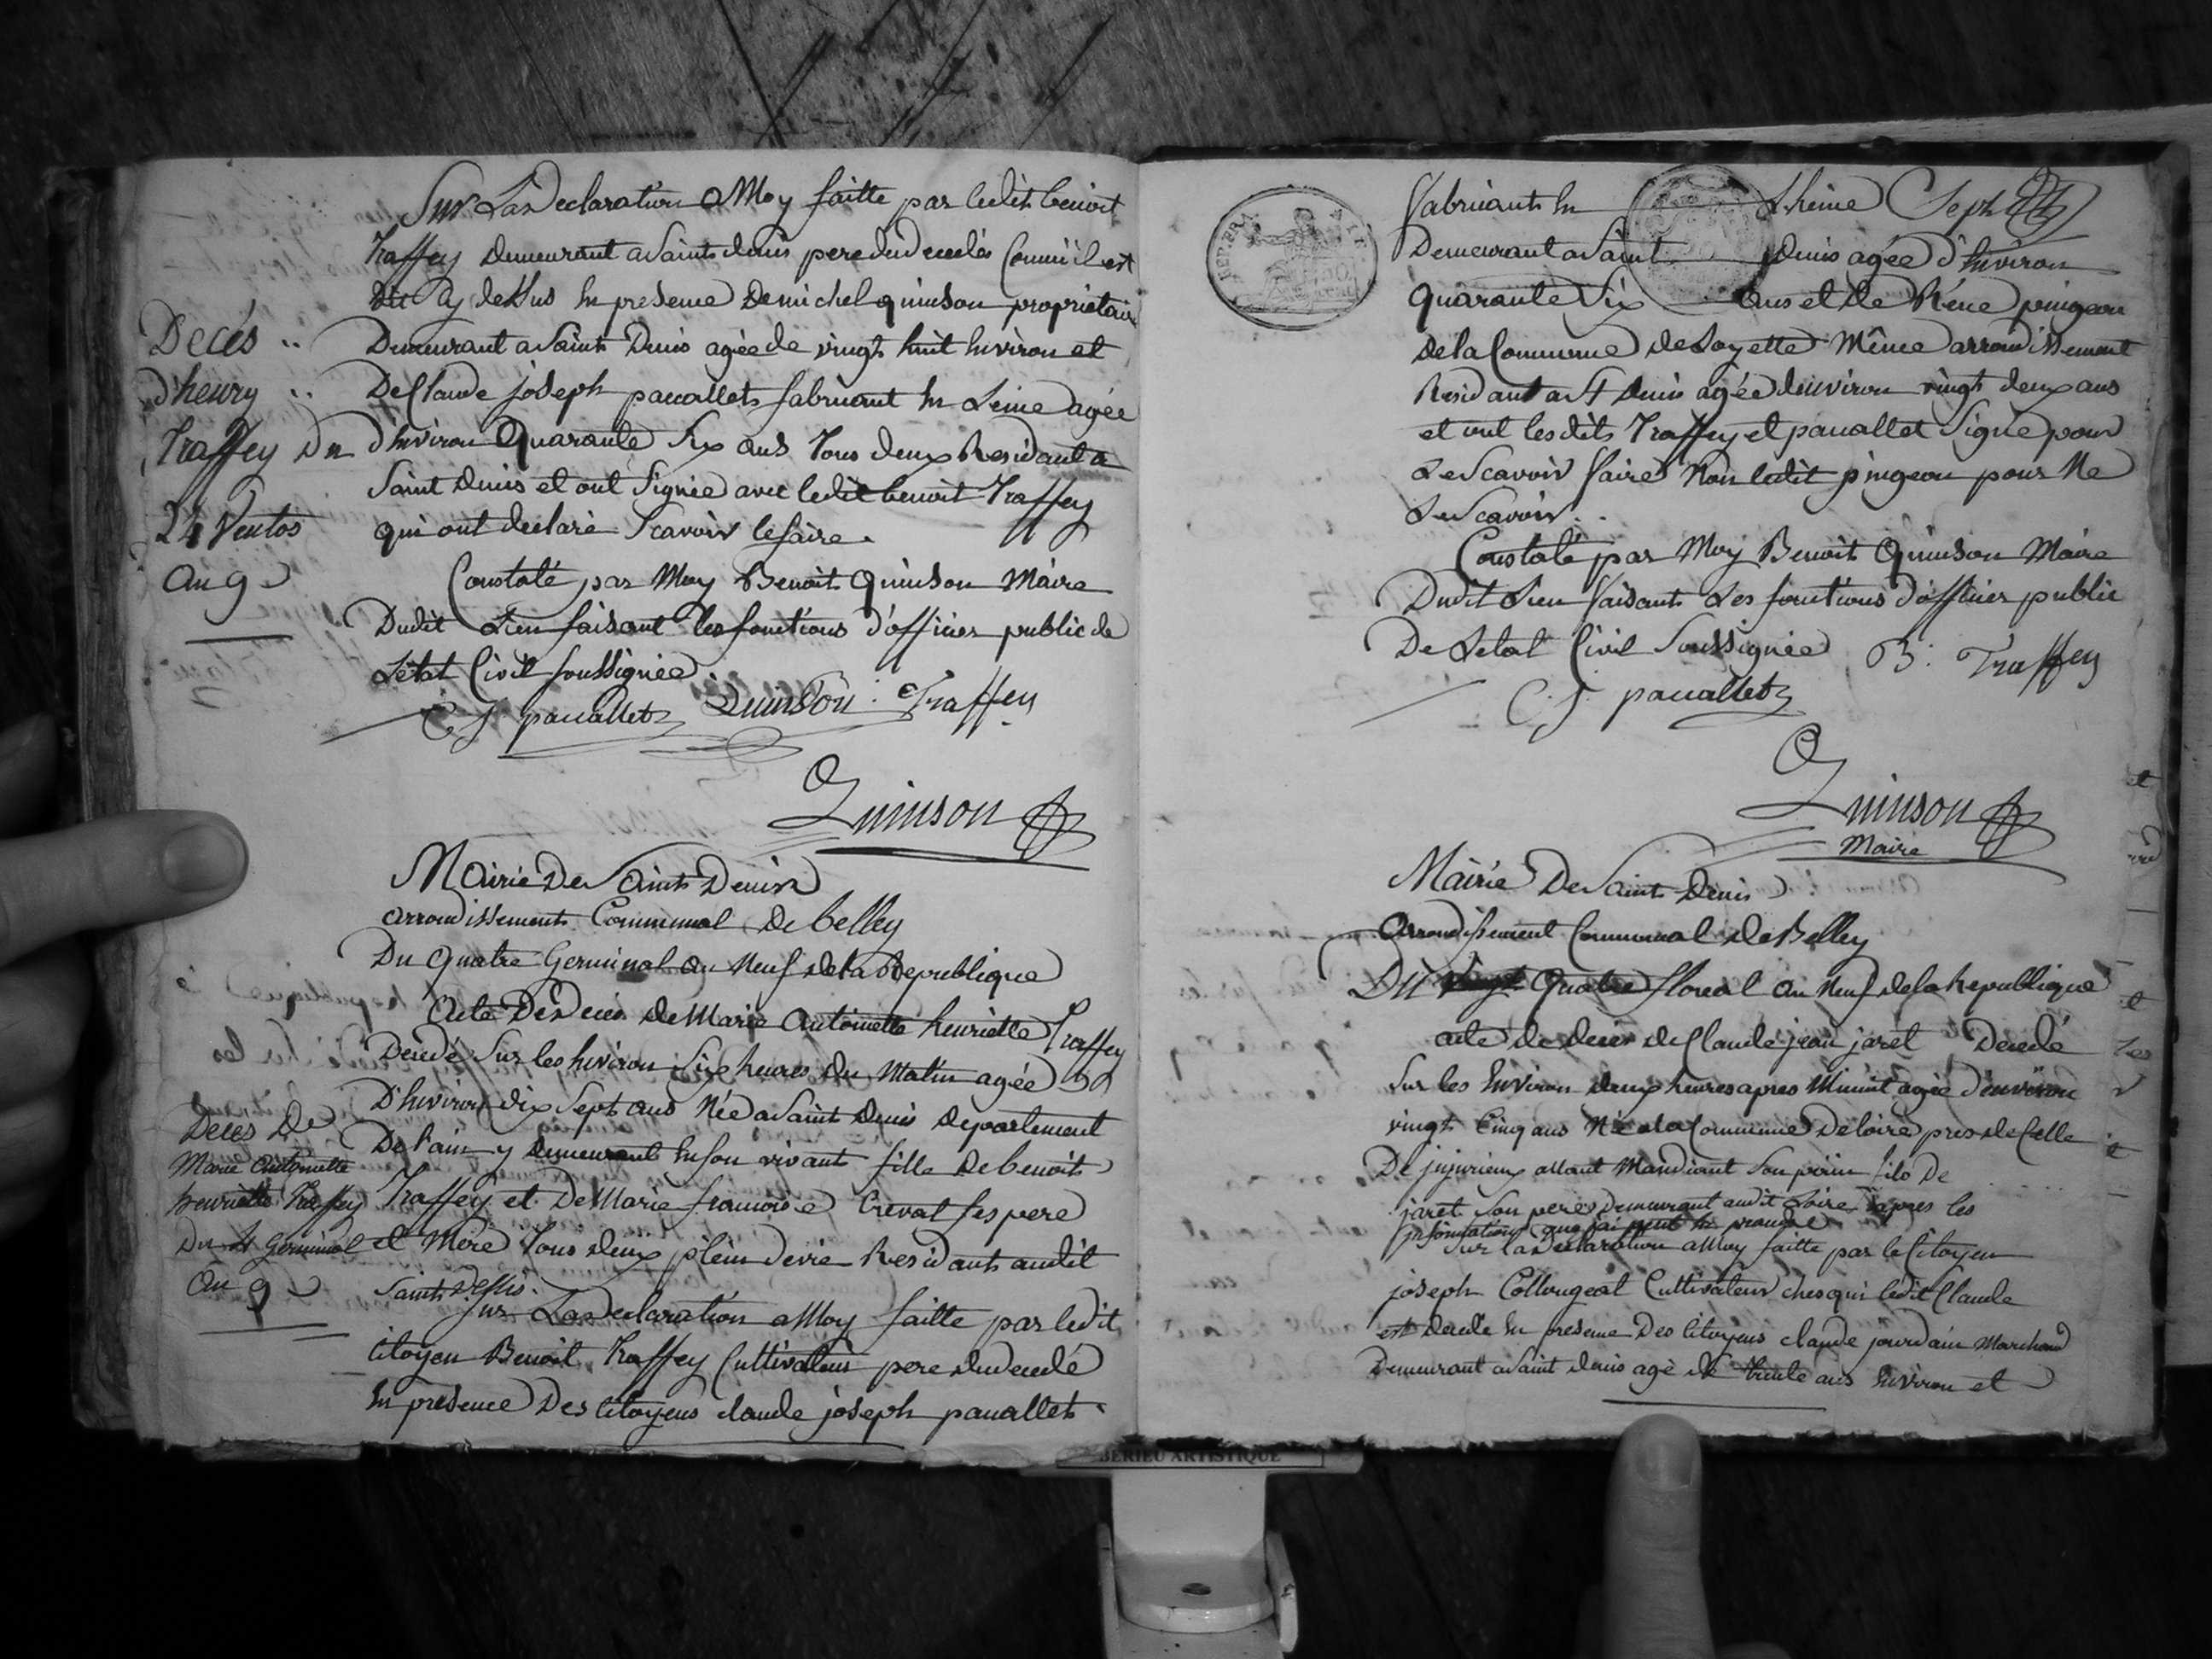 Sur La declaration a Moy faitte par ledit benoit
Traffey demeurant a Saint denis pere du decedés Comme il est
dit cy dessus en presence de michel quinson proprietaire
Demeurant a Saint Denis agée de vingt huit environ et
De Claude joseph pauallet fabricant en Leine agée
d'environ Quarante Six ans Tous deux Residant a
Saint Denis et ont Signée avec ledit benoit Traffey
qui ont declaré Scavoir le faire.
Constaté par Moy Benoit Quinson Maire
Dudit Lieu faisant les fonctions d'officier public de
L'état Civil soussignée.
C J pauallet Quinson Traffey
Quinson
Decés
d'henry
Traffey Du
24 Ventos
an 9
Mairie De Saint Denis
arrondissement Communal De belley
Du Quatre Germinal an Neuf de la Republique
Acte De Deces de Marie Antoinette henriette Traffey
Decedé Sur les environ Six heures du Matin agée
D'environ dix Sept ans Née a Saint Denis departement
De l'ain y demeurant en son vivant fille de benoit
Traffey et De Marie francoise Crevat ses pere
et Mere Tous deux plein de vie Residant audit
Saint Denis.
Sur La declaration a Moy faitte par ledit
Citoyen Benoit Traffey Cultivateur pere du decedé
En presence Des Citoyens claude joseph pauallet
Deces De
Marie Antoinette
henriette Traffey
Du 4 Germinal
an 9
REP. FRA
fabricant En Lheine Seph
Demeurant a Saint Denis agée d'Environ
Quarante Six ans et de Réne pingeon
de la Commune de Loyette Même arrondissement
Residant a St Denis agée d'environ vingt deux ans
et ont lesdits Traffey et pauallet Signé pour
Le Scavoir faire Non ledit pingeon pour Ne
Le Scavoir.
Constaté par Moy Benoit Quinson Maire
Dudit Lieu faisant Les fonctions d'officier public
De Letat Civil Soussignée B. Traffey
C. J. pauallet
Quinson
Maire
Mairie De Saint Denis
Arrondissement Communal de Belley
Du vingt Quatre floreal an Neuf de la Republique
acte de deces de Claude jean jaret Decedé
Sur les Environ deux heures apres Minuit agée d'environ
vingt Cinq ans Né a la Commune De loire pres de Celle
De jujurieux allant Mandiant Son pain fils de
jaret Son pere demeurant audit Loire dapres les
information que jai peut en prandre
Sur La Declaration a Moy faitte par le Citoyen
joseph Collougeat Cultivateur ches qui ledit Claude
est decede En presence Des Citoyens claude jourdain Marchand
Demeurant a Saint denis agé de trente ans Environ et
BERIEU ARTISTIQUE